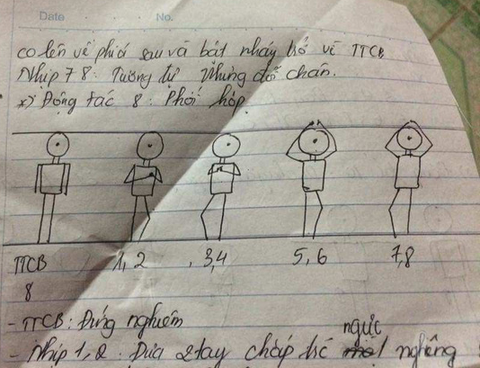 Date No.
co lên về phía sau và bật nhảy trở về TTCB
Nhịp 7, 8: Tương tự nhưng đổi chân.
*) Động tác 8: Phối hợp.
TTCB 1, 2 , 3,4 5,6 7,8
8
- TTCB: Đứng nghiêm
ngực
- Nhịp 1,2: Đưa 2 tay chắp trc nghiêng